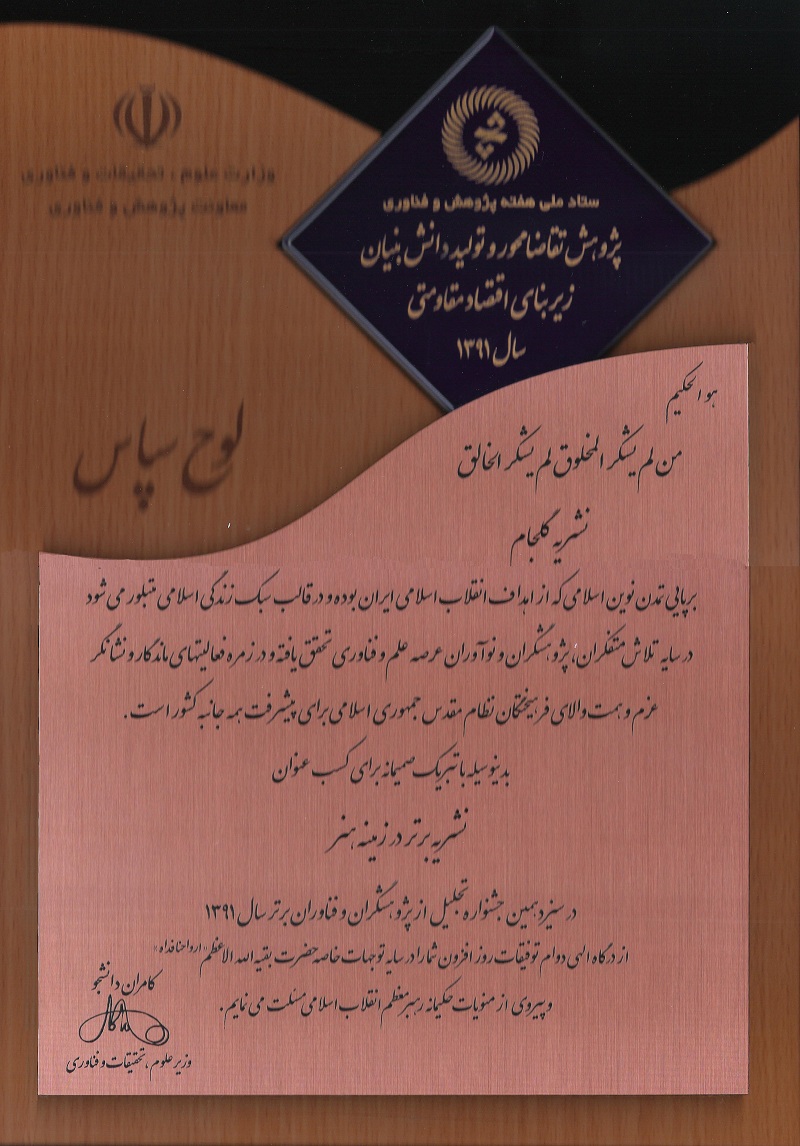 وزارت علوم، تحقیقات و فناوری
معاونت پژوهش و فناوری
ستاد ملی هفته پژوهش و فناوری
پژوهش تقاضا محور و تولید دانش بنیان
زیربنای اقتصاد مقاومتی
سال ۱۳۹۱
لوح سپاس
هو الحکیم
من لم یشکر المخلوق لم یشکر الخالق
نشریه گلجام
برپایی تمدن نوین اسلامی که از اهداف انقلاب اسلامی ایران بوده و در قالب سبک زندگی اسلامی متبلور می شود
در سایه تلاش متفکران، پژوهشگران و نوآوران عرصه علم و فناوری تحقق یافته و در زمره فعالیتهای ماندگار و نشانگر
عزم و همت والای فرهیختگان نظام مقدس جمهوری اسلامی برای پیشرفت همه جانبه کشور است.
بدینوسیله با تبریک صمیمانه برای کسب عنوان
نشریه برتر در زمینه هنر
در سیزدهمین جشنواره تجلیل از پژوهشگران و فناوران برتر سال ۱۳۹۱
از درگاه الهی دوام توفیقات روز افزون شما را در سایه توجهات خاصه حضرت بقیه الله الاعظم "ارواحنا فداه"
و پیروی از منویات حکیمانه رهبر معظم انقلاب اسلامی مسئلت می نمایم.
کامران دانشجو
وزیر علوم، تحقیقات و فناوری